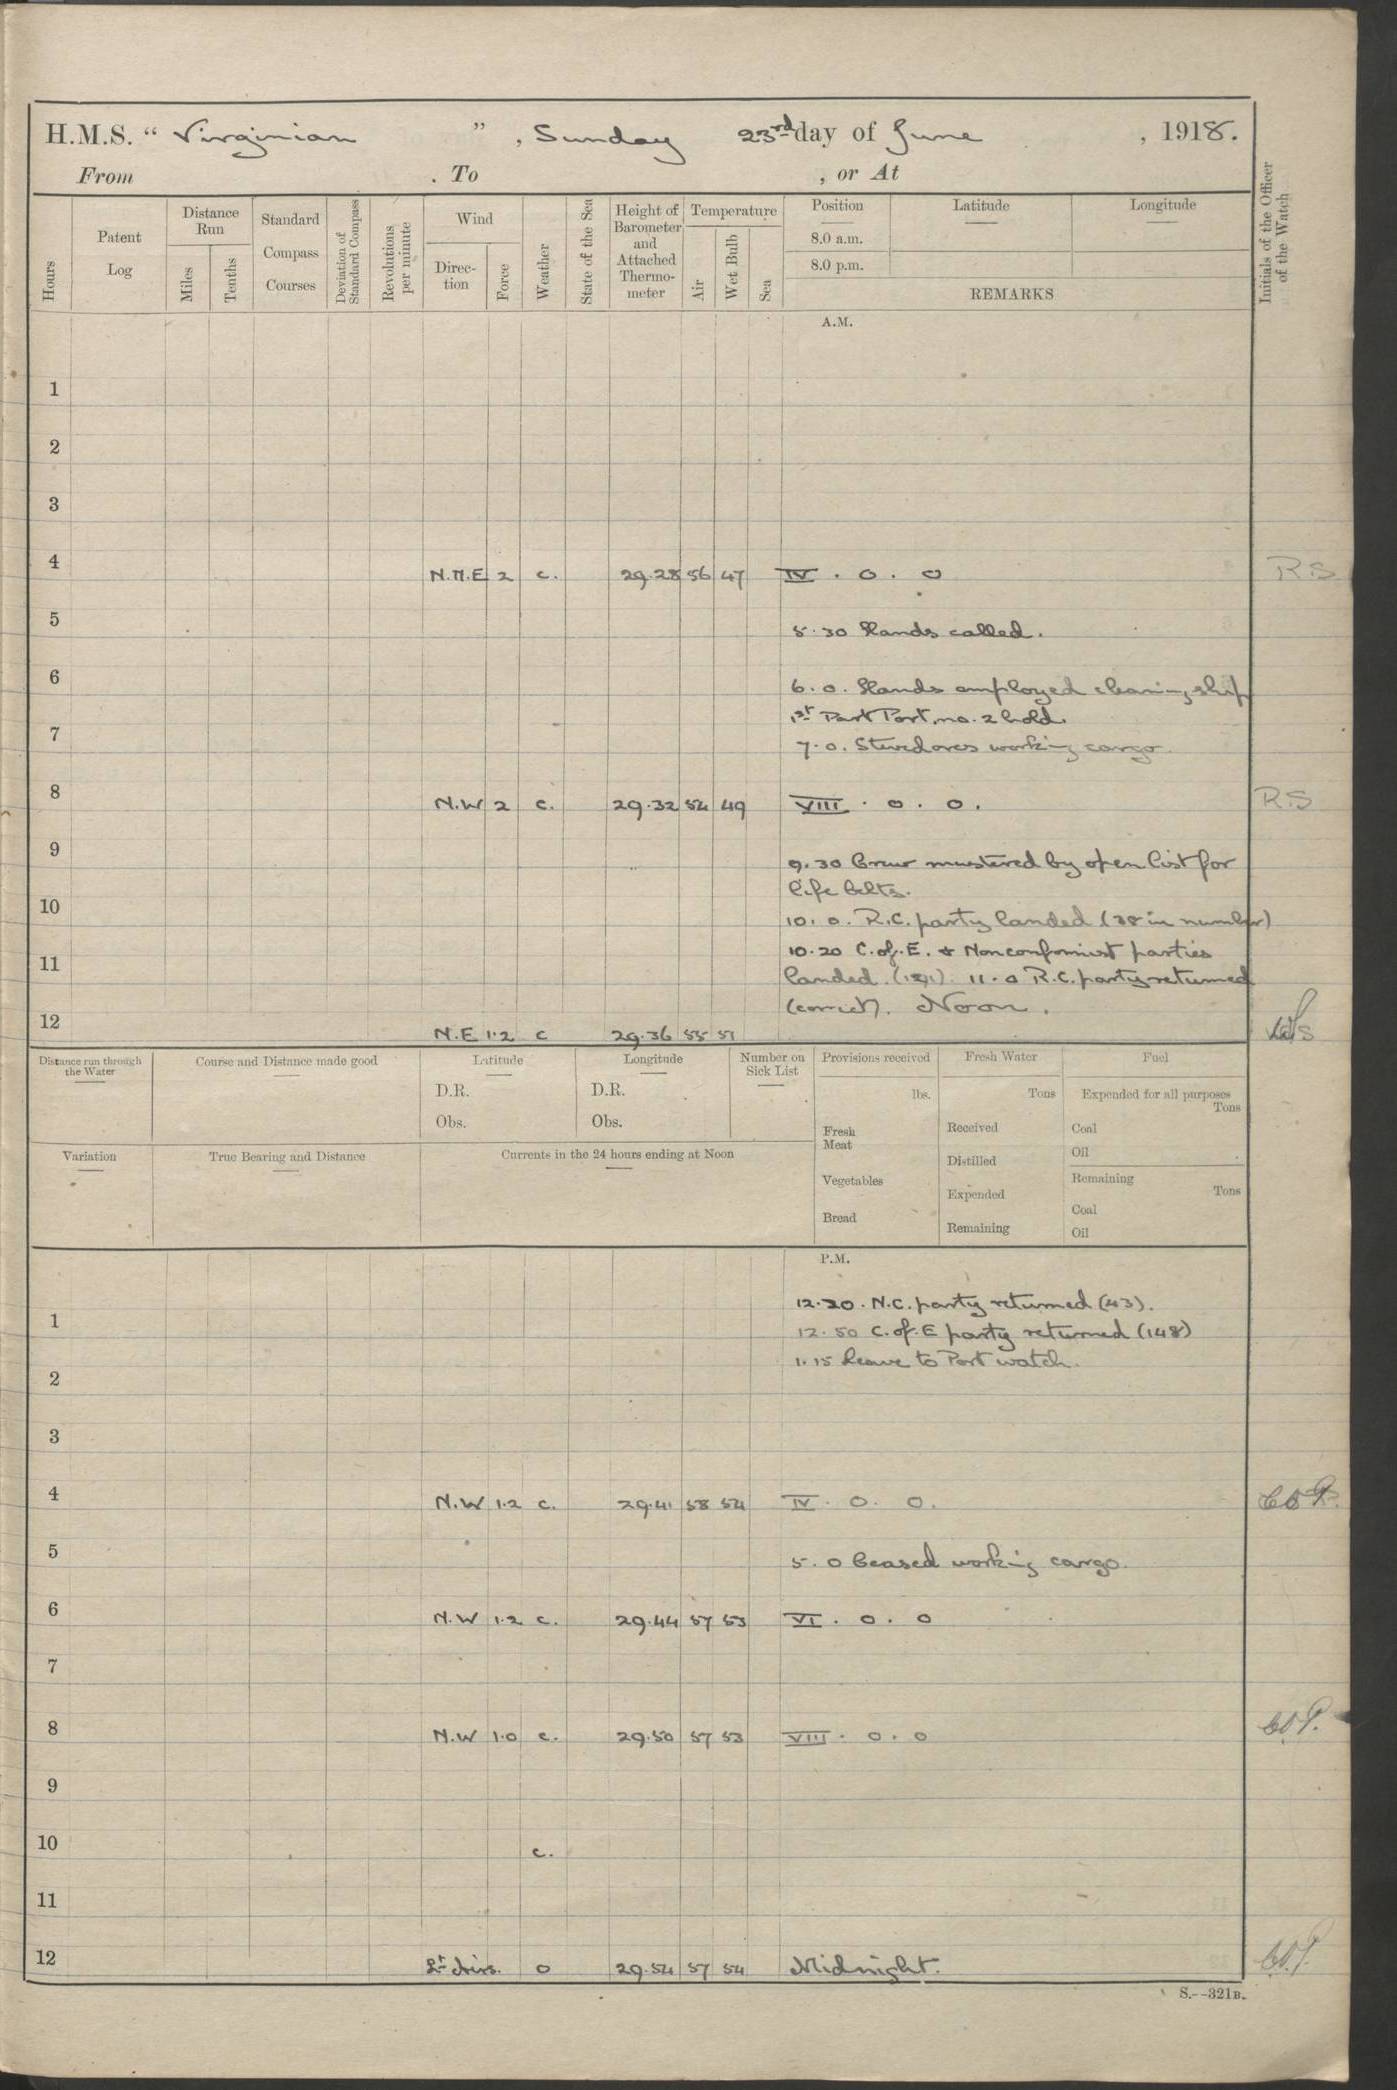 H.M.S. "Virginian", Sunday 23rd day of June, 1918.
From . To , or At
Hours
Patent Log
Distance Run
Miles
Tenths
Standard Compass Courses
Deviation of Standard Compass
Revolutions per minute
Wind
Direc-tion
Force
Weather
State of the Sea
Height of Barometer and Attached Thermo-meter
Temperature
Air
Wet Bulb
Sea
Position
8.0 a.m.
8.0 p.m.
Latitude
Longitude
REMARKS
Initials of the Officer of the Watch
A.M.
1
2
3
4 N.N.E 2 c. 29.28 56 47 IV . 0 . 0 R.S
5 5.30 Hands called.
6 6.0. Hands employed cleaning ship
1st Part Port, no. 2 hold.
7 7.0. Stevedores working cargo
8 N.W 2 c. 29.32 52 49 VIII . 0 . 0. R.S
9 9.30 Crew mustered by open list for
life belts.
10 10.0. R.C. party landed (38 in number)
10.20 C.of.E. & Nonconformist parties
11 landed. (191). 11.0 R.C. party returned
(correct). Noon.
12 N.E 1.2 c 29.36 55 51
Distance run through the Water
Course and Distance made good
Latitude
D.R.
Obs.
Longitude
D.R.
Obs.
Number on Sick List
Provisions received
lbs.
Fresh Meat
Vegetables
Bread
Fresh Water
Tons
Received
Distilled
Expended
Remaining
Fuel
Expended for all purposes
Tons
Coal
Oil
Remaining
Tons
Coal
Oil
Variation
True Bearing and Distance
Currents in the 24 hours ending at Noon
P.M.
12.20. N.C. party returned (43).
1 12.50 C.of.E party returned (148)
1.15 Leave to Port watch.
2
3
4 N.W 1.2 c. 29.41 58 54 IV . 0. 0.
5 5.0 Ceased working cargo.
6 N.W 1.2 c. 29.44 57 53 VI . 0. 0
7
8 N.W 1.0 c. 29.50 57 53 VIII . 0. 0
9
10 c.
11
12 Lt Airs. 0 29.54 57 54 Midnight.
S.--321B.